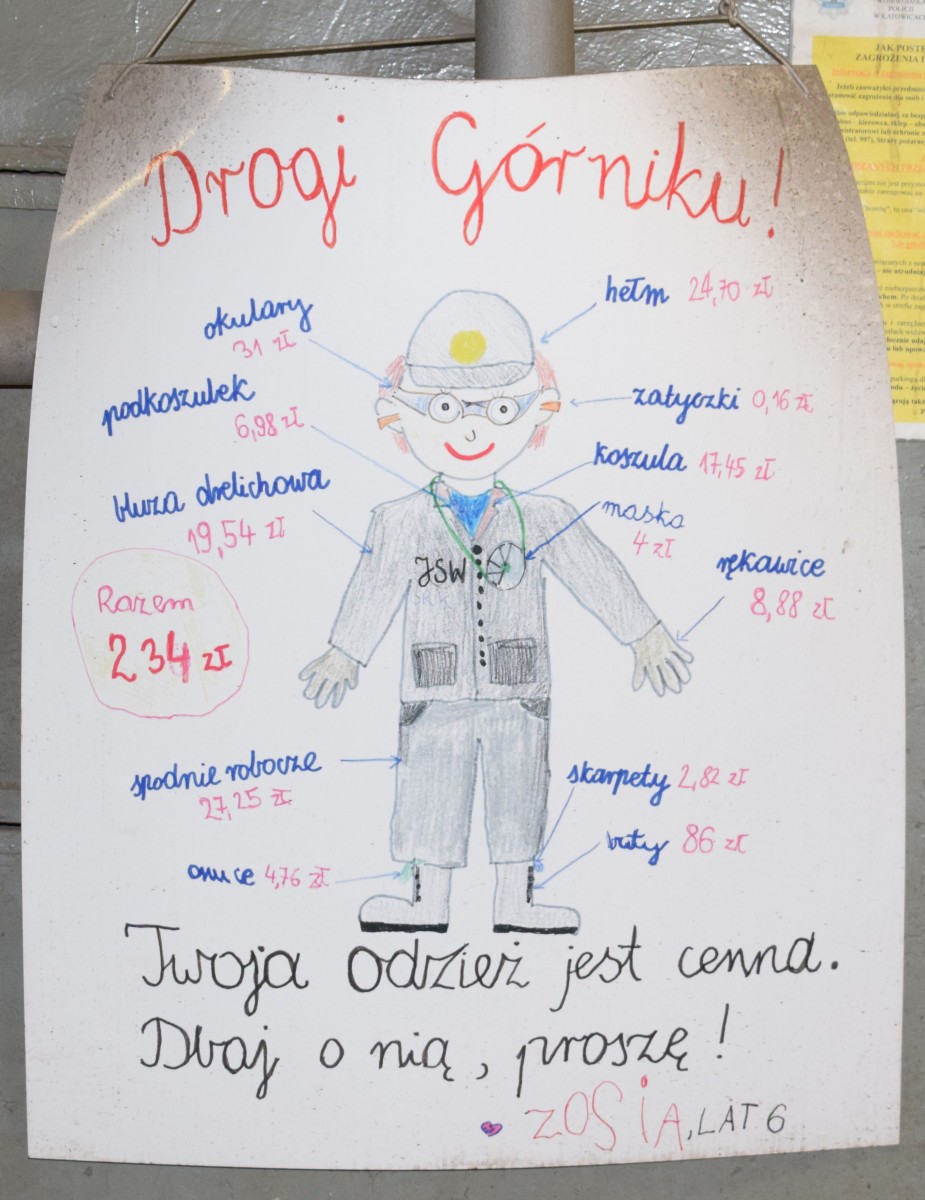 Drogi Górniku!
okulary
31 zł
hełm 24,70 zł
podkoszulek
6,98 zł
zatyczki 0,16 zł
koszula 17,45 zł
bluza drelichowa
19,54 zł
maska
4 zł
rękawice
8,88 zł
JSW
SRK
Razem
234 zł
spodnie robocze
27,25 zł
skarpety 2,82 zł
buty 86 zł
onuce 4,76 zł
Twoja odzież jest cenna.
Dbaj o nią, proszę!
ZOSIA, LAT 6
POLICJI
W KATOWICACH
JAK POSTĘ
ZAGROŻENIA B